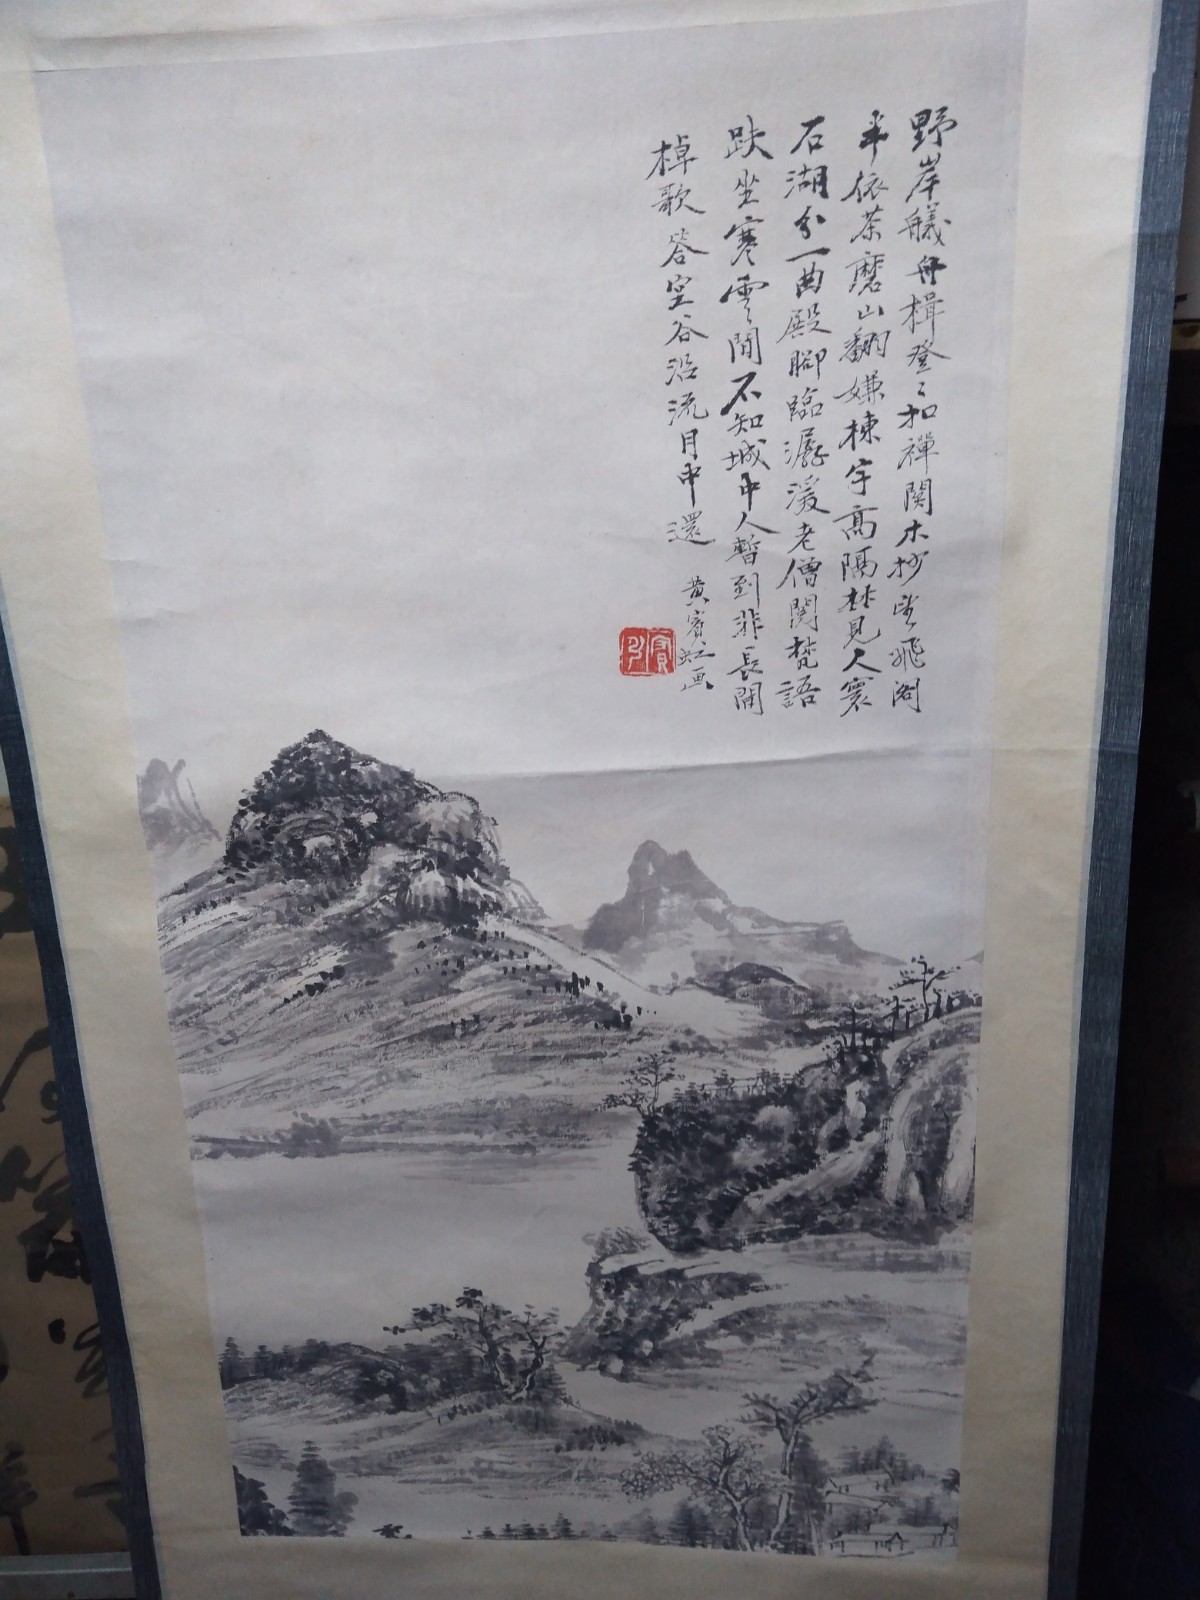 野岸艤舟楫登〻扣禪関木杪望飛閣
半依茶磨山翻嫌棟宇高隔林見人寰
石湖分一曲殿腳臨潺湲老僧関梵語
趺坐寒雲間不知城中人暫到非長閑
棹歌答空谷沿流月中還
黃賓虹画
賓虹